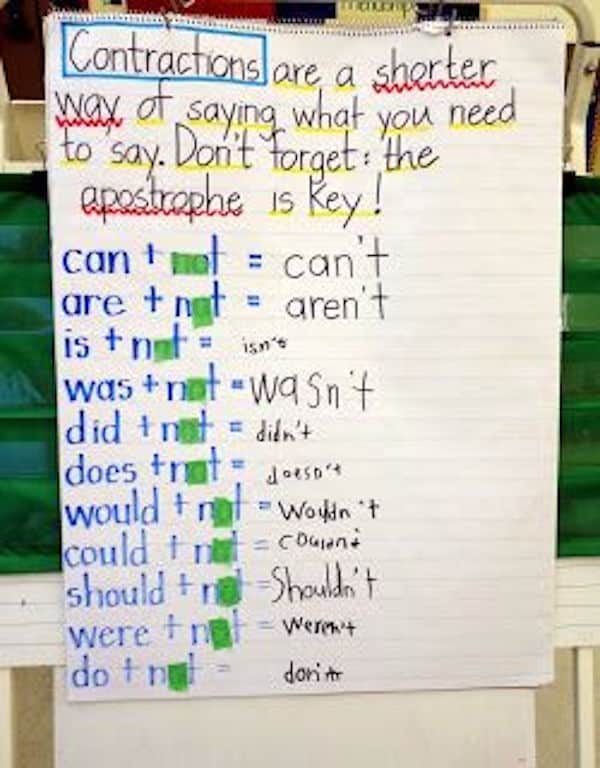 Contractions are a shorter
way of saying what you need
to say. Don't forget: the
apostrophe is key!
can + not = can't
are + not = aren't
is + not = isn't
was + not = wasn't
did + not = didn't
does + not = doesn't
would + not = Wouldn't
could + not =
should + not = Shouldn't
were + not = Weren't
do + not =